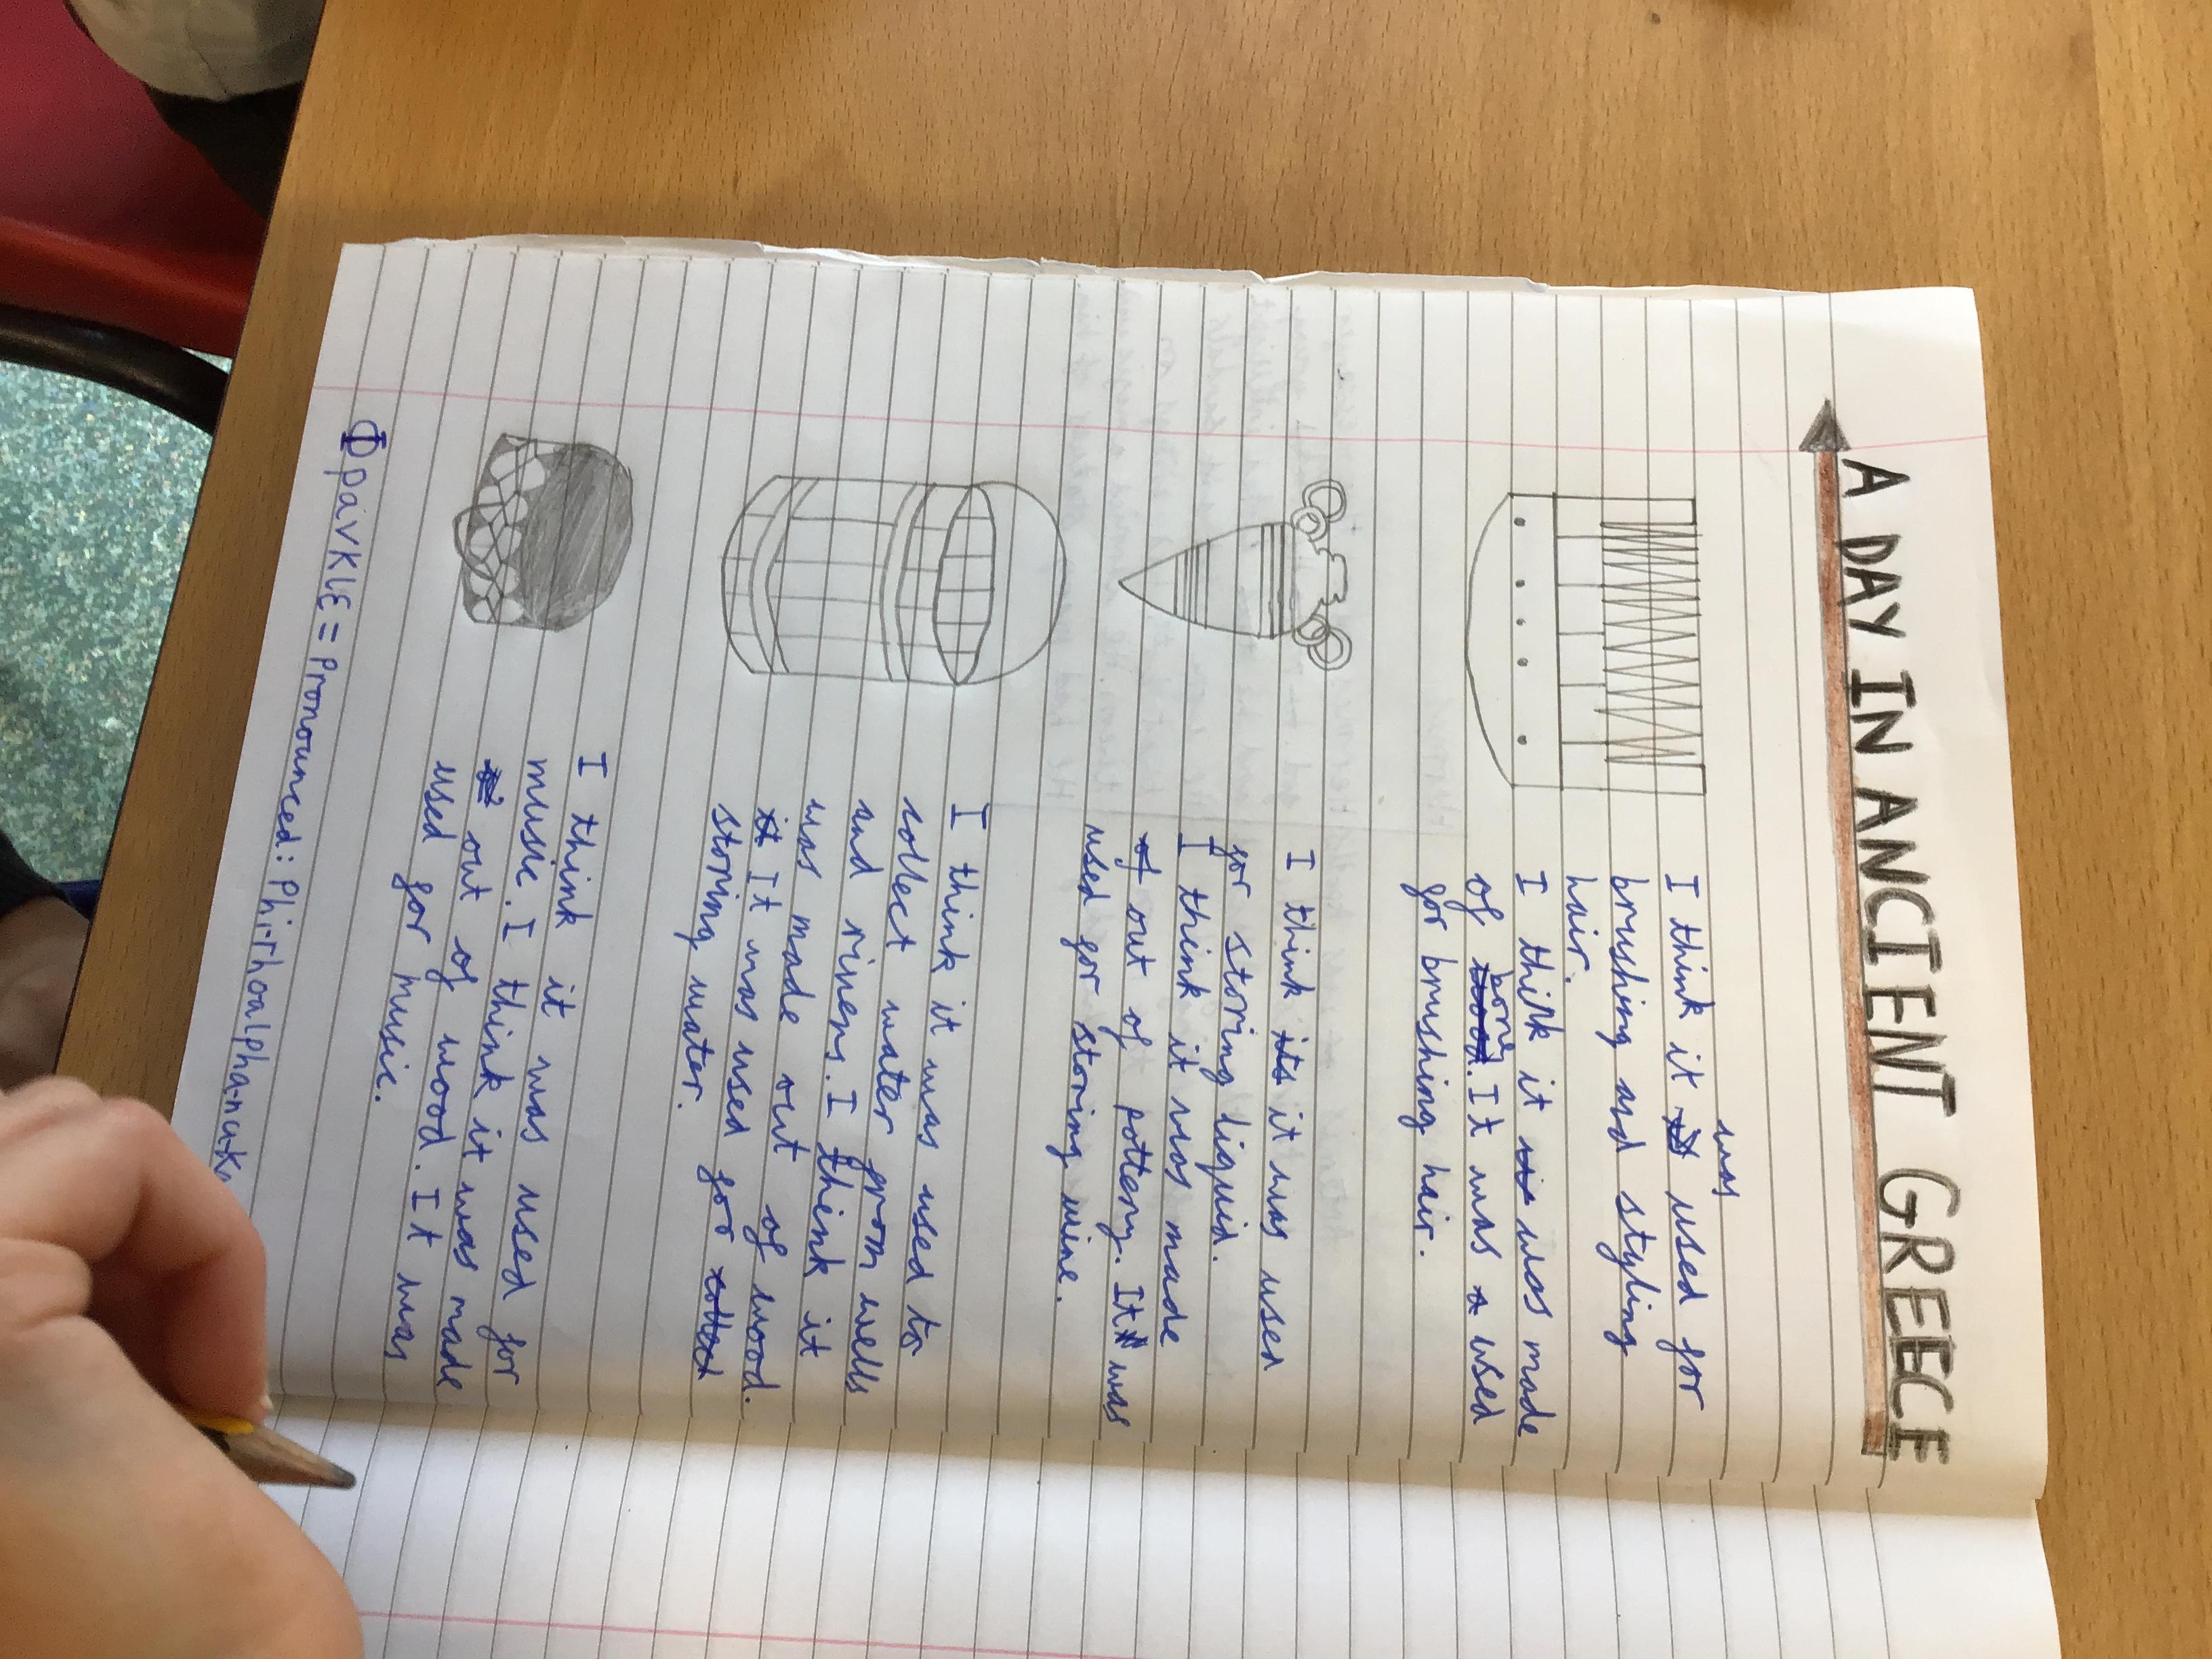 A DAY IN ANCIENT GREECE
was
I think it used for
brushing and styling
hair.
I think it was made
bone
of wood. It was a used
for brushing hair.
I think its it was used
for storing liquid.
I think it was made
of out of pottery. It was
used for storing wine.
I think it was used to
collect water from wells
and rivers. I think it
was made out of wood.
it It was used for
storing water.
I think it was used for
music. I think it was made
out of wood. It was
used for music.
Φρανκιε = pronounced: Phi-rhoalpha-nu-k